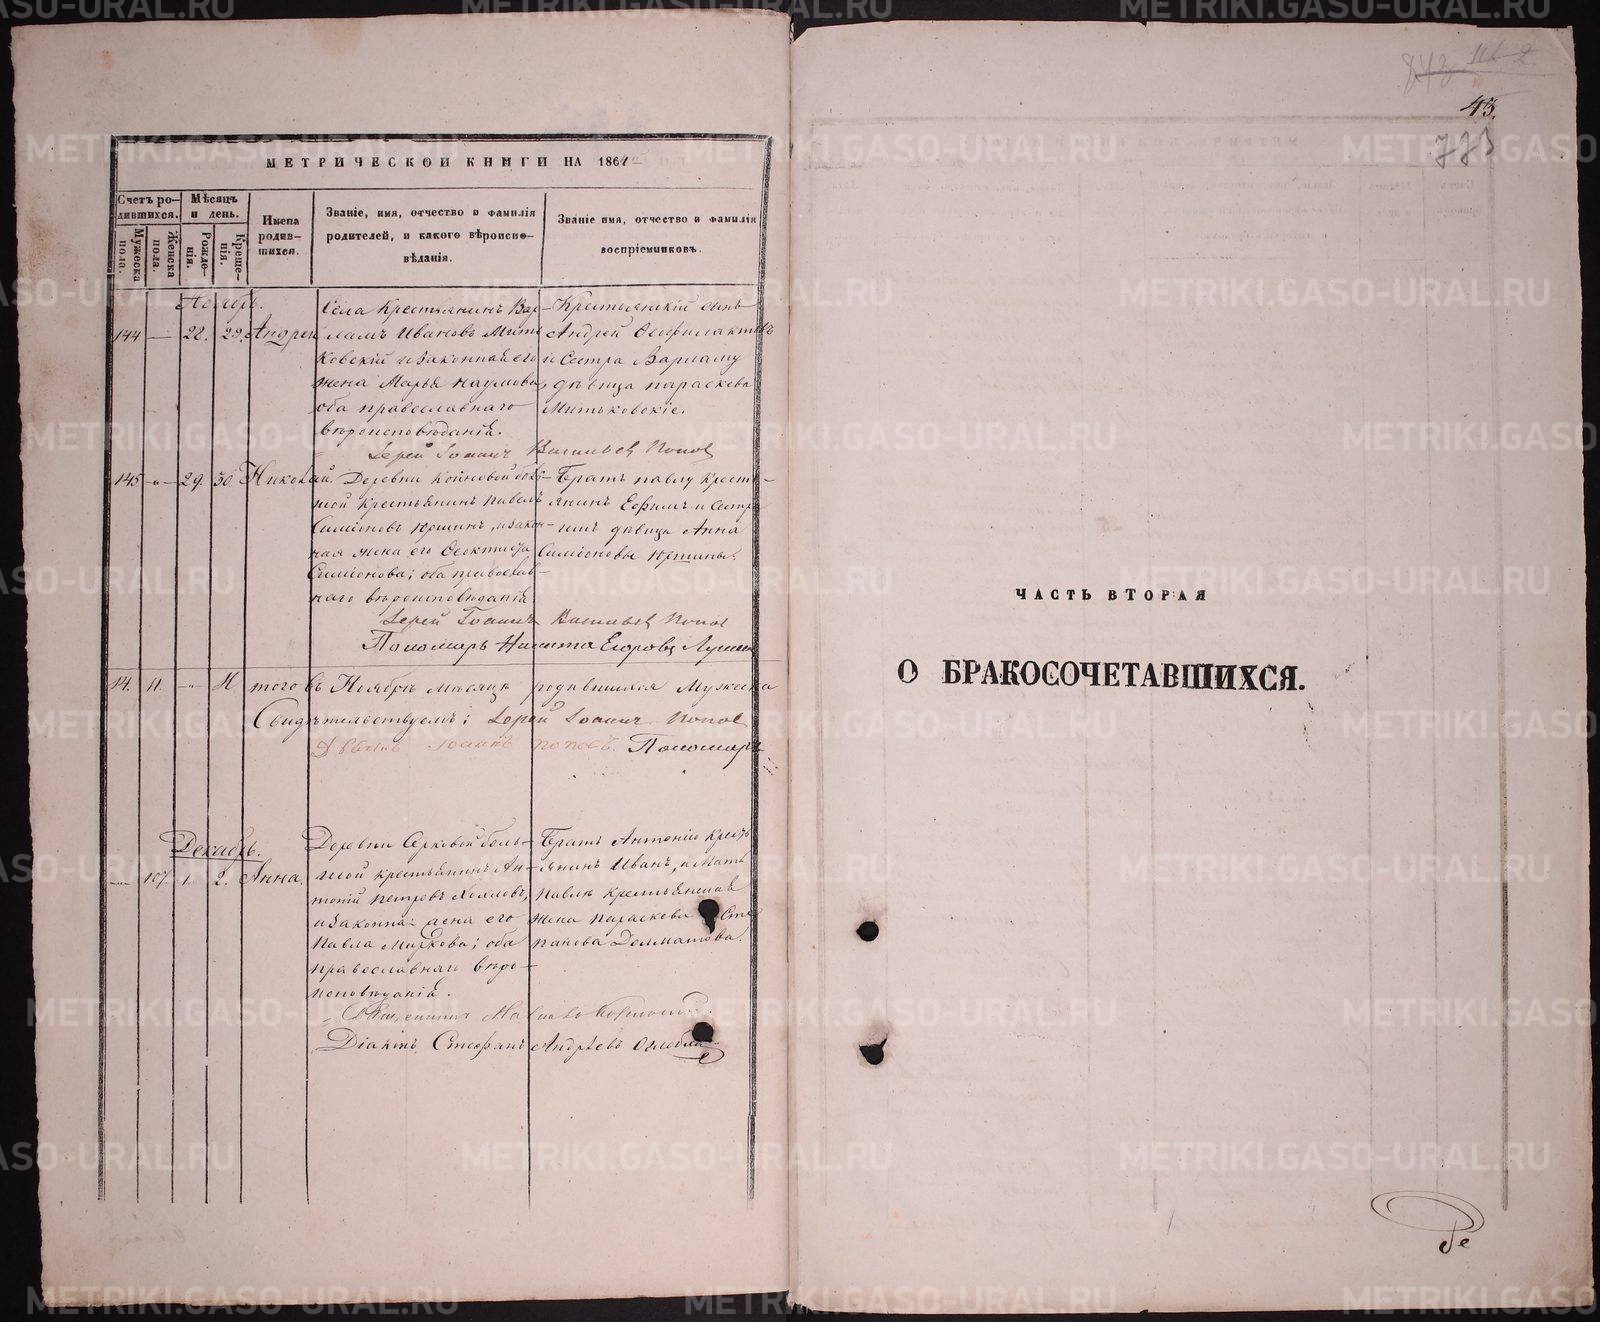 МЕТРИЧЕСКОЙ КНИГИ НА 1861
Счетъ родившихся.
Мѣсяцъ и день.
Имена родившихся.
Званіе, имя, отчество и фамилія родителей, и какого вѣроисповѣданія.
Званіе имя, отчество и фамилія воспріемниковъ.
Мужеска пола.
Женска пола.
Рожденія.
Крещенія.
Ноябрь.
144 — 28. 29. Андрей
Села Крестьянинъ Вар-
ламъ Ивановъ Мить
ковскій и законная его
жена Марья Наумова,
оба православнаго
вѣроисповѣданія.
Крестьянскій сынъ
Андрей Ѳеофилактовъ
и Сестра Варламу
дѣвица Параскева
Митьковскіе.
Іерей Іоаннъ Васильевъ Поповъ
145 — 29. 30. Николай.
Деревни
крестьянинъ Павелъ
Симіоновъ Юшинъ, и закон-
ная жена его Ѳеоктиста
Симіонова; оба православ-
наго вѣроисповѣданія
Братъ Павлу Кресть-
янинъ Ефимъ и Сестра
дѣвица Анна
Симіоновы Юшины.
Іерей Іоаннъ Васильевъ Поповъ
Пономарь Никита Егоровъ
Итого въ Ноябрѣ мѣсяцѣ родившихся Мужеска
Свидѣтельствуемъ; Іерей Іоаннъ Поповъ
Іоаннъ Поповъ. Пономарь
Декабрь.
— 107. 1. 2. Анна.
Деревни Серковой боль-
шой крестьянинъ Ан-
тоній Петровъ
и законная жена его
Павла Маркова; оба
православнаго вѣро-
исповѣданія.
Братъ Антонію Кресть
янинъ Иванъ, и Мать
Павлѣ крестьянская
жена Параскева Сте
панова Долматова.
Священникъ
Діаконъ Стефанъ Андреевъ
45.
773
ЧАСТЬ ВТОРАЯ
О БРАКОСОЧЕТАВШИХСЯ.
METRIKI.GASO-URAL.RU